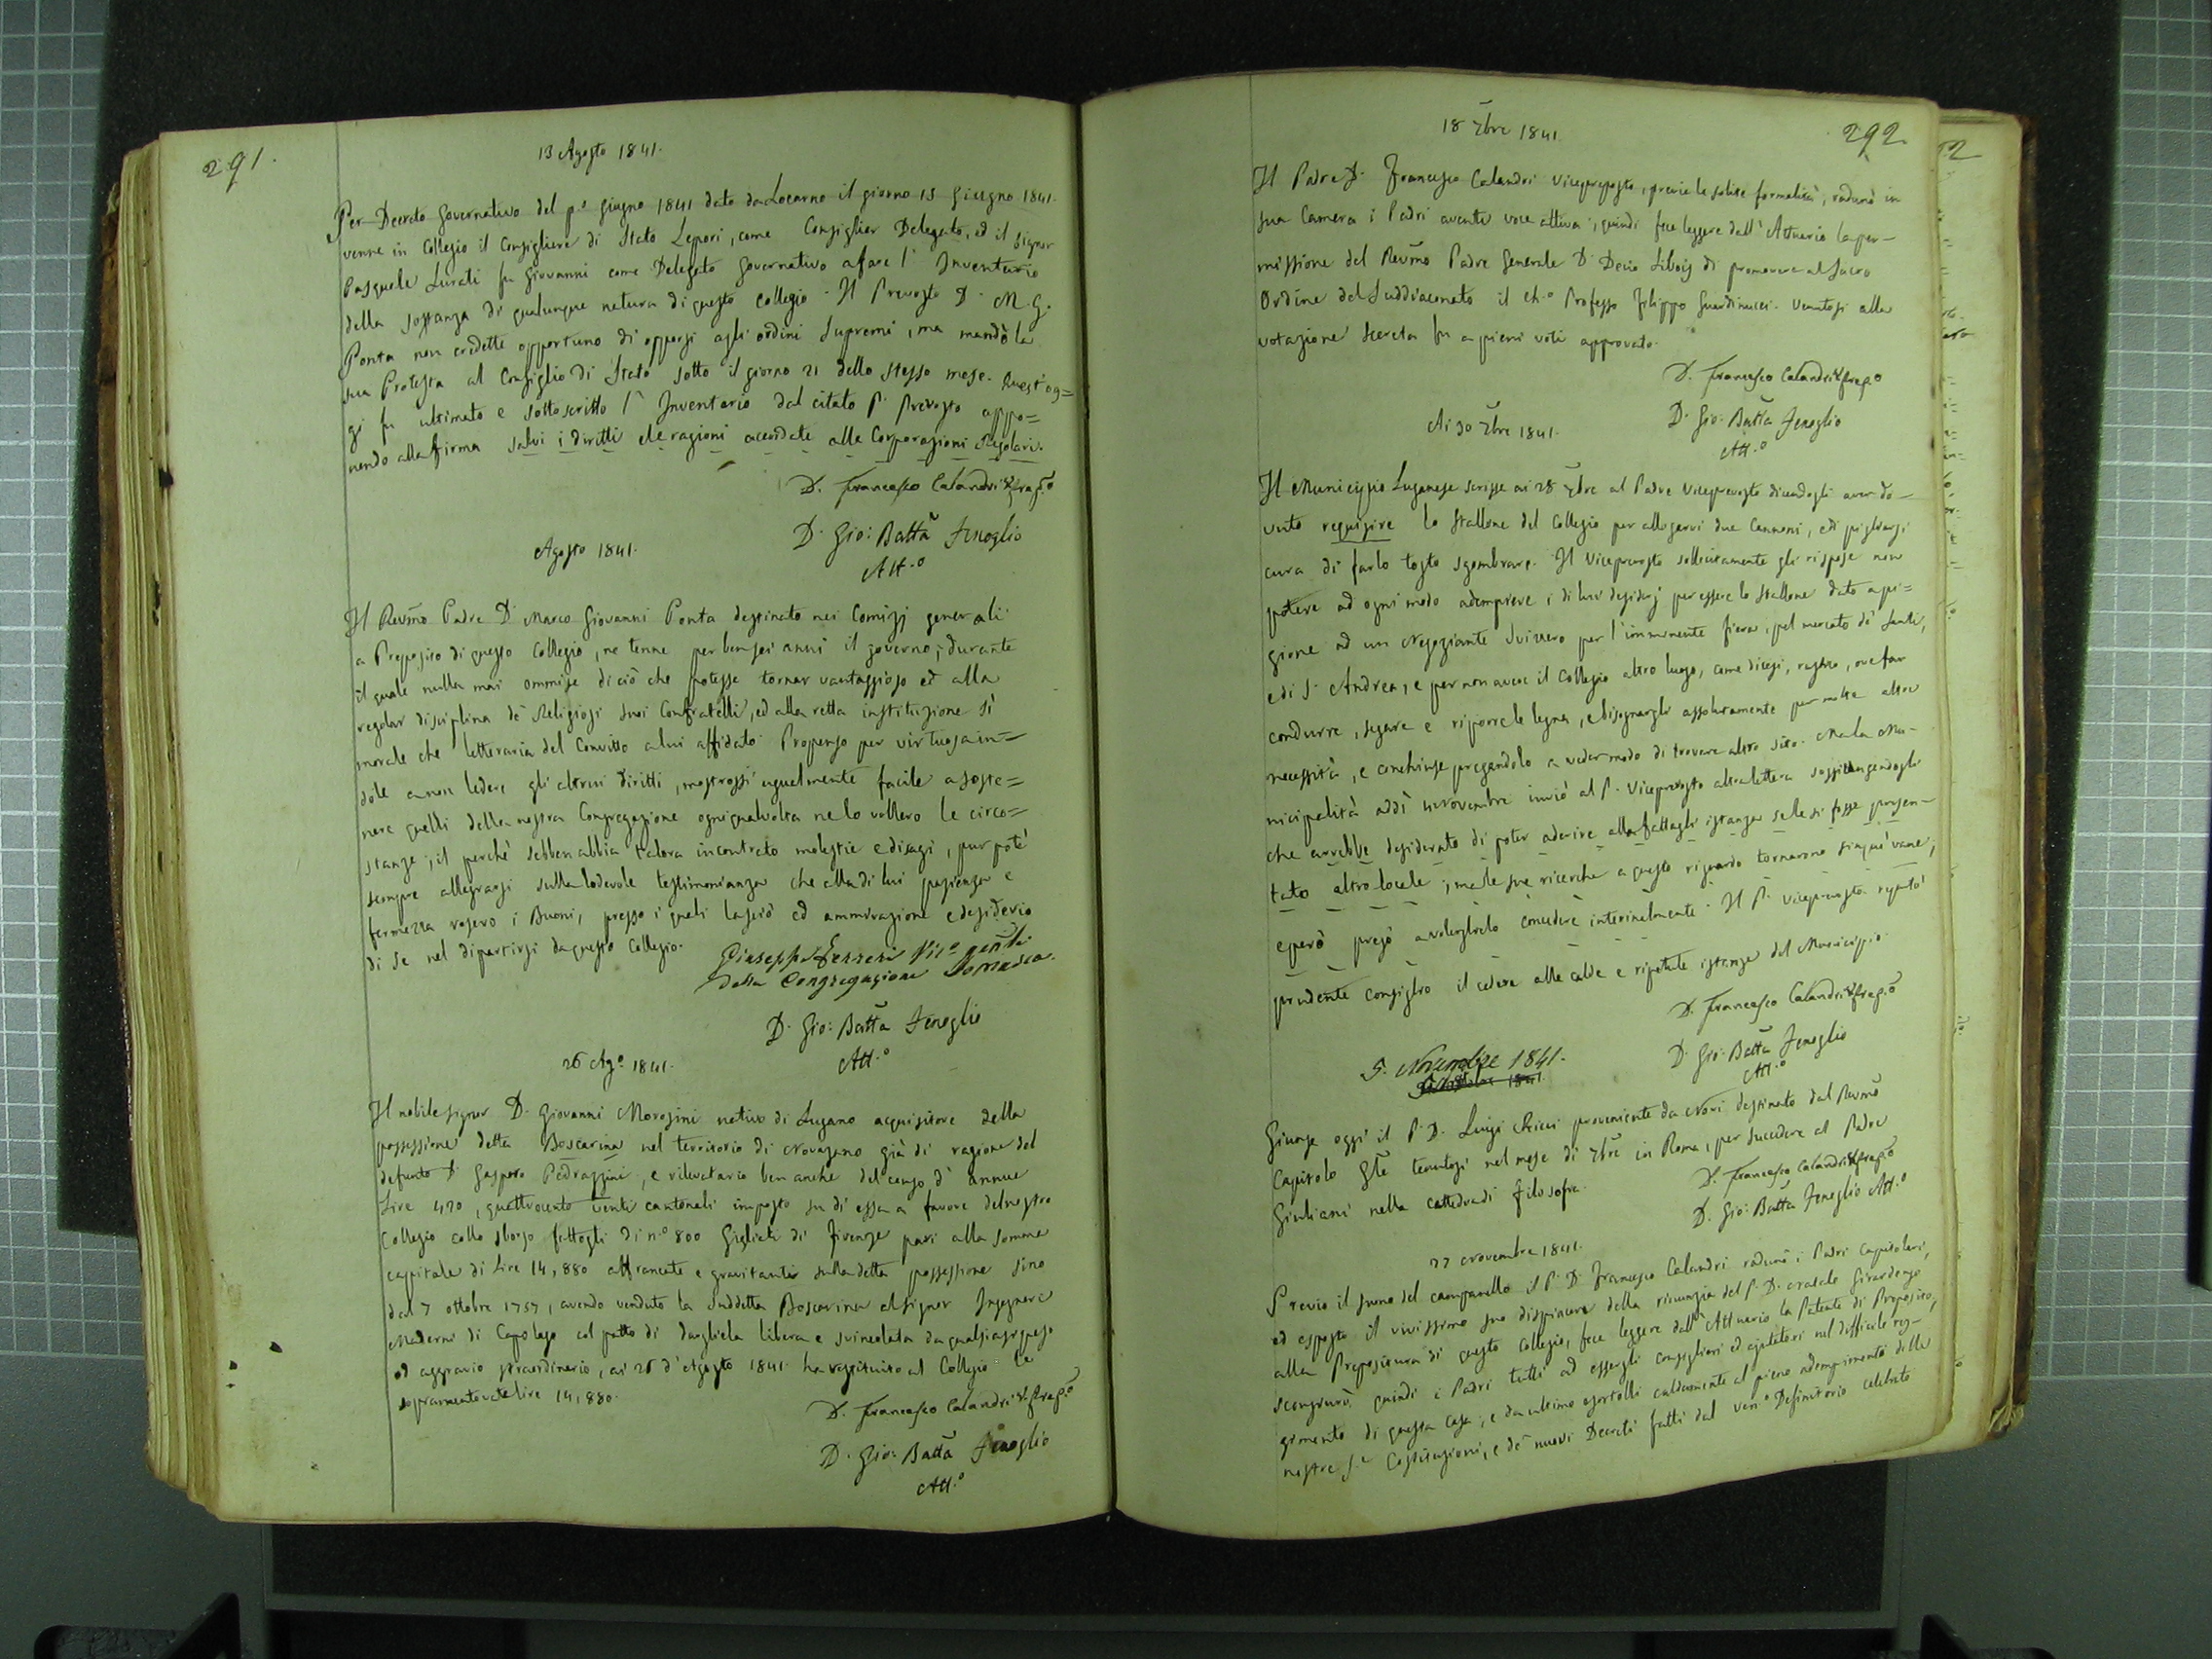 291.
13 Agosto 1841.
Per Decreto Governativo del p.º giugno 1841 dato da Locarno il giorno 15 Giugno 1841.
venne in Collegio il Consigliere di Stato Lepori, come Consiglier Delegato, ed il Signor
Pasquale Lurati fu Giovanni come Delegato Governativo a fare l' Inventario
della sostanza di qualunque natura di questo Collegio. Il Prevosto D. M. G.
Ponta non credette opportuno di opporsi agli ordini Supremi, ma mandò la
sua Protesta al Consiglio di Stato sotto il giorno 21 dello stesso mese. Quest'og=
gi fu ultimato e sottoscritto l' Inventario dal citato P. Prevosto appo=
nendo alla firma salvi i diritti e le ragioni accordate alle Corporazioni Regolari.
D. Francesco Calandri V. prep.o
D. Gio: Batta Fenoglio
Att.o
Agosto 1841.
Il Revmo Padre D. Marco Giovanni Ponta destinato nei Comizj generali
a Preposito di questo Collegio, ne tenne per ben sei anni il governo; durante
il quale nulla mai ommise di ciò che potesse tornar vantaggioso ed alla
regolar disciplina de' Religiosi suoi Confratelli, ed alla retta instituzione sì
morale che letteraria del Convitto a lui affidato. Propenso per virtuosa in=
dole a non ledere gli altrui diritti, mostrossi ugualmente facile a soste=
nere quelli della nostra Congregazione ogniqualvolta ne lo vollero le circo=
stanze; il perchè sebben abbia talora incontrato molestie e disagi, pur potè
sempre allegrarsi sulla lodevole testimonianza che alla di lui pazienza e
fermezza resero i Buoni, presso i quali lasciò ed ammirazione e desiderio
di se nel dipartirsi da questo Collegio.
Giuseppe Ferreri Vic.o genle
della Congregazione Somasca.
D. Gio: Batta Fenoglio
Att.o
26 Ag.o 1841.
Il nobile signor D. Giovanni Morosini nativo di Lugano acquisitore della
possessione detta Boscarina nel territorio di Novazzano già di ragione del
defunto D. Gasparo Pedrazzini, e rilevatario ben anche del censo d' annue
Lire 420, quattrocento venti cantonali imposto su di essa a favore del nostro
Collegio collo sborso fattogli di n.o 800 Gigliati di Firenze pari alla somma
capitale di Lire 14,880 affrancate e gravitanti sulla detta possessione sino
dal 7 ottobre 1757, avendo venduto la suddetta Boscarina al signor Ingegnere
Maderni di Capolago col patto di dargliela libera e svincolata da qualsiasi peso
ed aggravio straordinario, ai 26 d'Agosto 1841. ha restituito al Collegio le
soprammentovate lire 14,880.
D. Francesco Calandri V. prep.o
D. Gio: Batta Fenoglio
Att.o
292
18 7bre 1841
Il Padre D. Francesco Calandri Vicepreposto, previe le solite formalità, radunò in
sua Camera i Padri aventi voce attiva; quindi fece leggere dall' Attuario la per-
missione del Revmo Padre Generale D. Decio Libois di promovere al Sacro
Ordine del Suddiaconato il ch.o Professo Filippo Guardinucci. Venutosi alla
votazione secreta fu a pieni voti approvato.
D. Francesco Calandri V. prep.o
D. Gio: Batta Fenoglio
Att.o
Ai 30 7bre 1841.
Il Municipio Luganese scrisse ai 28 7bre al Padre Viceprevosto dicendogli aver do-
vuto requisire lo stallone del Collegio per allogarvi due Cannoni, e di pigliarsi
cura di farlo tosto sgombrare. Il Viceprevosto sollicitamente gli rispose non
potere ad ogni modo adempiere i di lui desiderj per essere lo stallone dato a pi=
gione ad un Negoziante Svizzero per l'imminente fiera, pel mercato de' Santi,
e di S. Andrea, e per non avere il Collegio altro luogo, come dicesi, rustico, ove far
condurre, segare e riporre le legna, e bisognargli assolutamente per molte altre
necessità, e conchiuse pregandolo a veder modo di trovare altro sito. Ma la Mu-
nicipalità addì 4 Novembre inviò al P. Viceprevosto altra lettera soggiungendogli
che avrebbe desiderato di poter aderire alla fattagli istanza se le si fosse presen-
tato altro locale; ma le sue ricerche a questo riguardo tornarono sinqui vane,
e però pregò a volerglielo concedere interinalmente. Il P. Viceprevosto reputò
prudente consiglio il cedere alle calde e ripetute istanze del Municipio.
D. Francesco Calandri V. prep.o
D. Gio: Batta Fenoglio
Att.o
5. Novembre 1841.
Giunse oggi il P. D. Luigi Ricci proveniente da Novi destinato dal Revmo
Capitolo Gle tenutosi nel mese di 7bre in Roma, per succedere al Padre
Giuliani nella cattedra di filosofia.
D. Francesco Calandri V. prep.o
D. Gio: Batta Fenoglio Att.o
22 Novembre 1841.
Previo il suono del campanello il P. D. Francesco Calandri radunò i Padri Capitolari,
ed esposto il vivissimo suo dispiacere della rinunzia del P. D. Natale Girardengo
alla Prepositura di questo Collegio, fece leggere dall' Attuario la Patente di Preposito,
scongiurò quindi i Padri tutti ad essergli consiglieri ed ajutatori nel difficile reg-
gimento di questa Casa; e da ultimo esortolli caldamente al pieno adempimento delle
nostre S.e Costituzioni, e de' nuovi Decreti fatti dal ven.o Definitorio celebrato